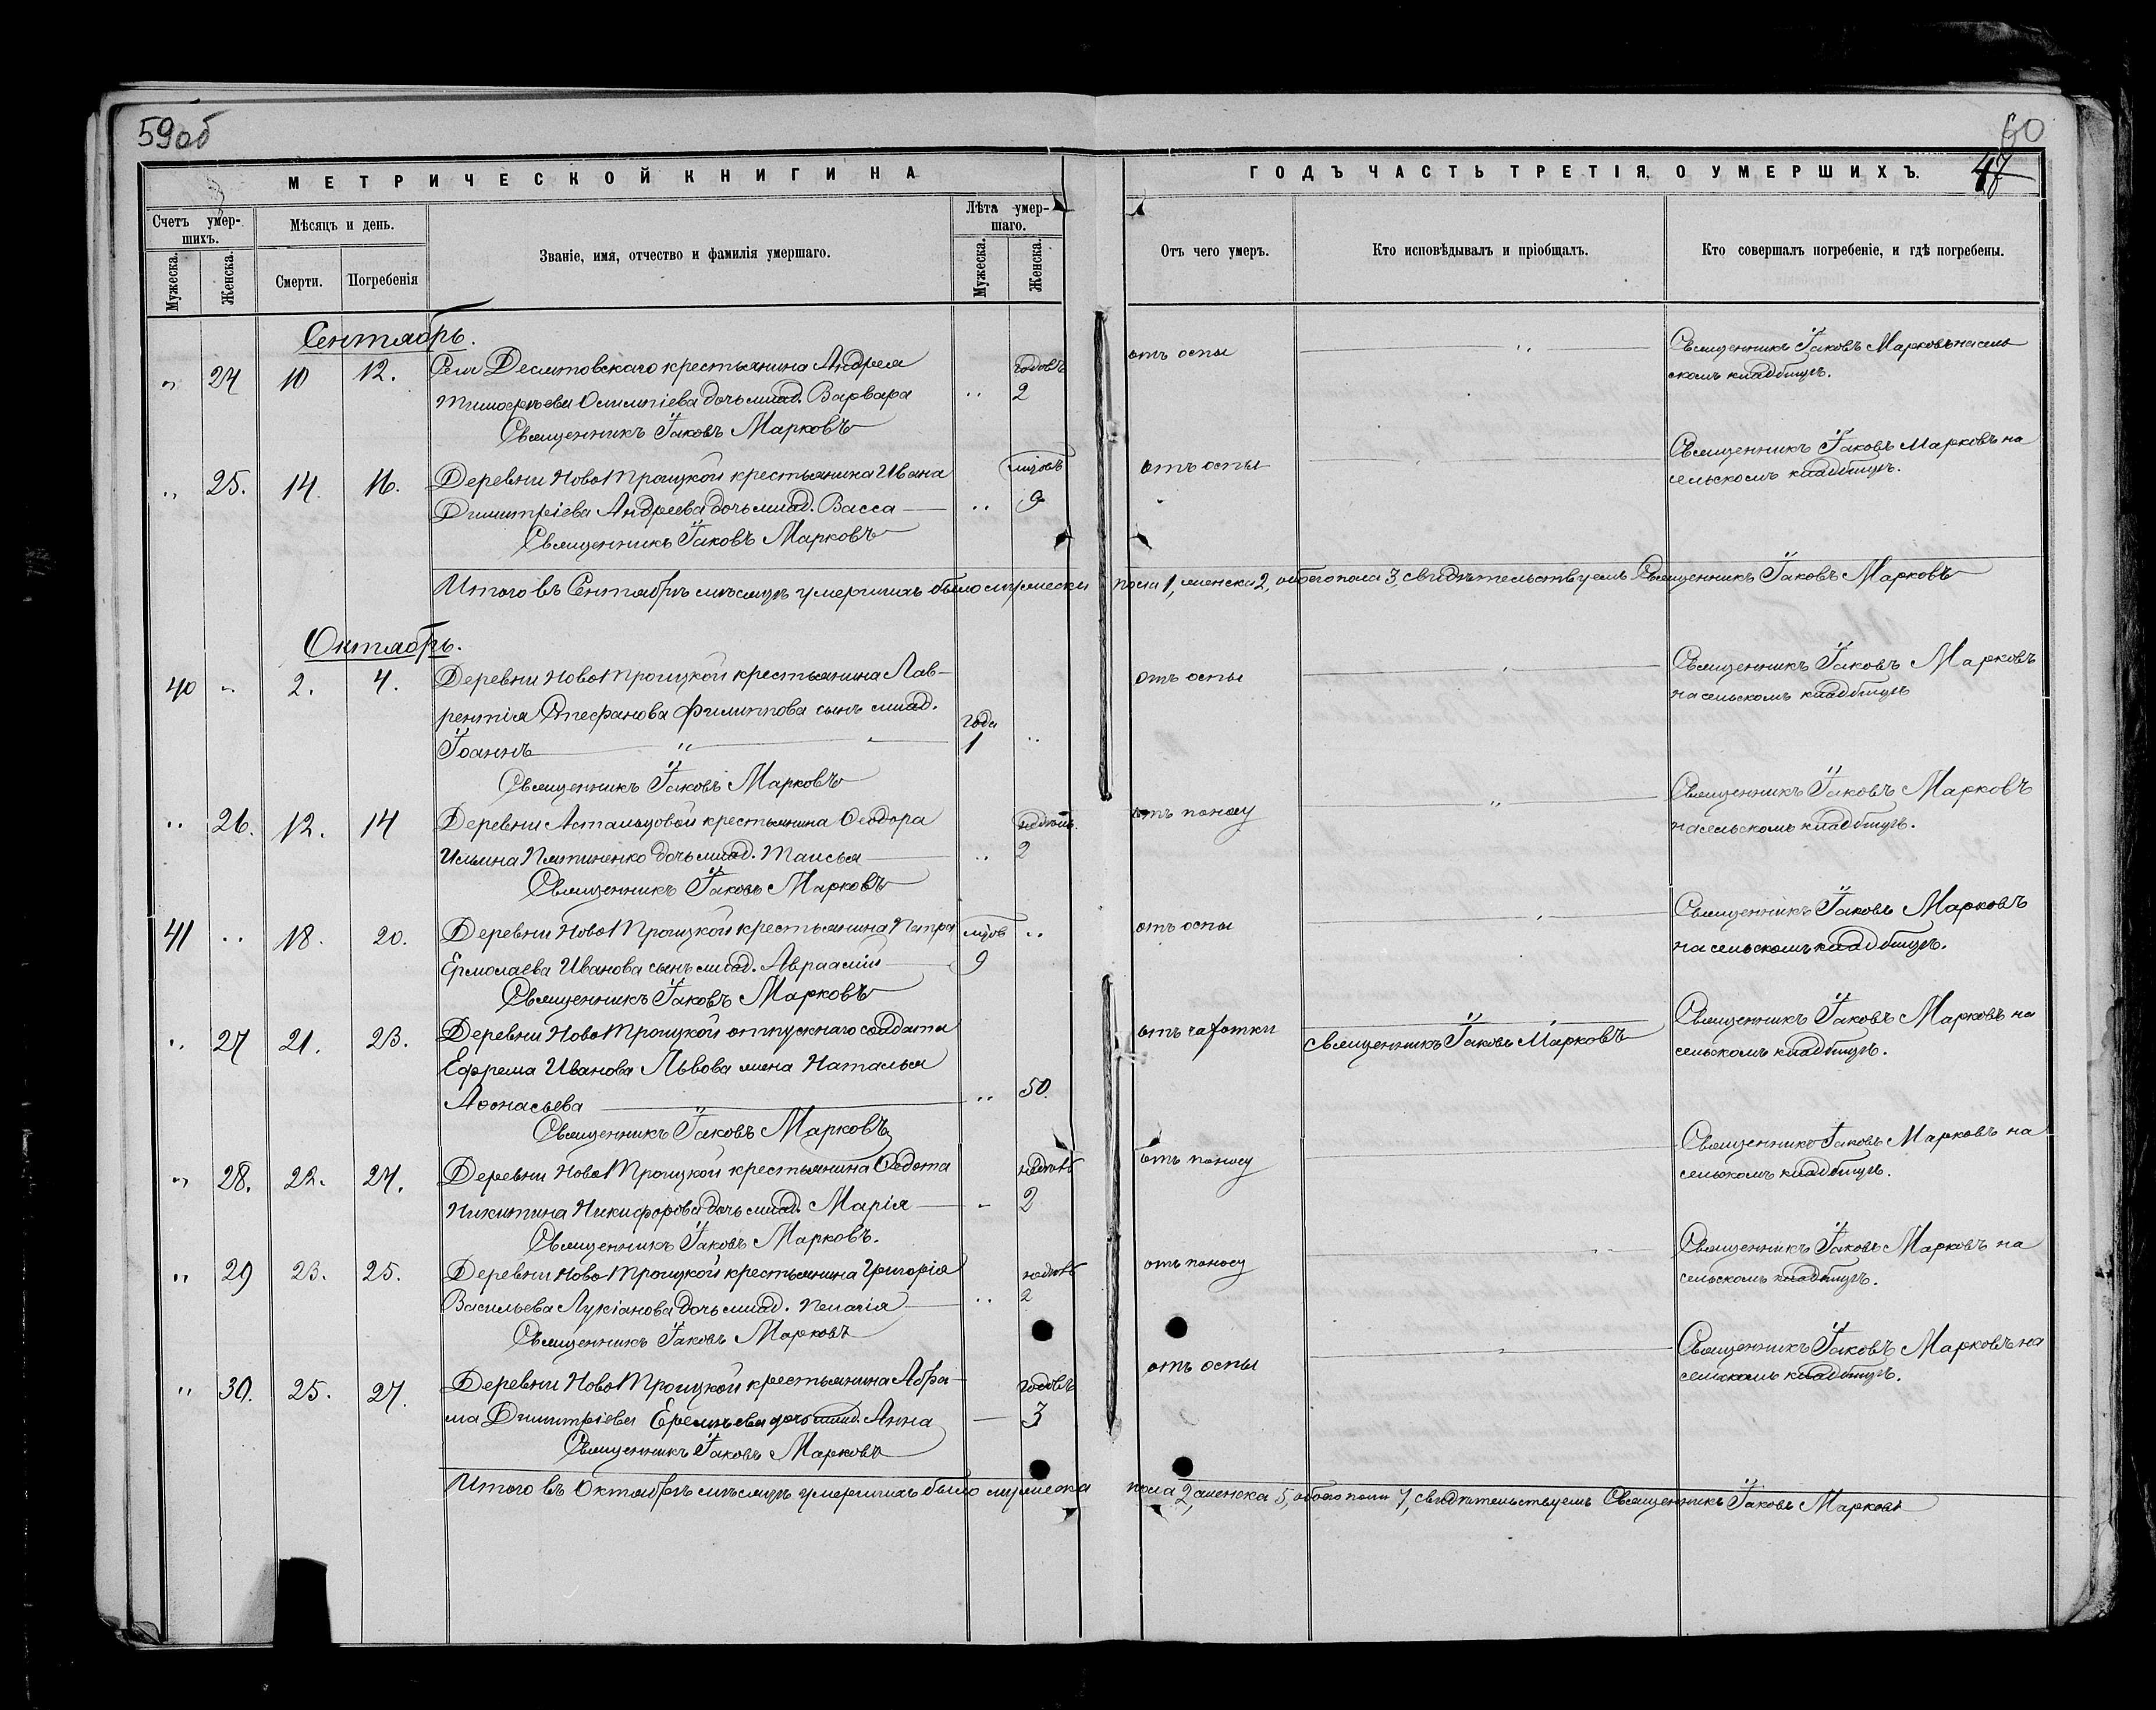 59об
60
47
МЕТРИЧЕСКОЙ КНИГИ НА
ГОДЪ ЧАСТЬ ТРЕТІЯ, О УМЕРШИХЪ.
Счетъ умер-
шихъ.
Мѣсяцъ и день.
Званіе, имя, отчество и фамилія умершаго.
Лѣта умер-
шаго.
Отъ чего умеръ.
Кто исповѣдывалъ и пріобщалъ.
Кто совершалъ погребеніе, и гдѣ погребены.
Мужеска.
Женска.
Смерти.
Погребенія
Мужеска.
Женска.
Сентябрь.
„ 24 10 12. Села Десятовскаго крестьянина Андрея годовъ отъ оспы „ Священникъ Іаковъ Марковъ на сель
Тимофѣева Олимпіева дочь млад. Варвара „ 2 скомъ кладбищѣ.
Священникъ Іаковъ Марковъ
„ 25. 14. 16. Деревни Ново Троицкой крестьянина Ивана мцовъ отъ оспы Священникъ Іаковъ Марковъ на
Димитріева Андреева дочь млад. Васса „ 9 сельскомъ кладбищѣ.
Священникъ Іаковъ Марковъ
Итого въ Сентябрѣ мѣсяцѣ умершихъ было мужеска пола 1, женска 2, обоего пола 3, свидѣтельствуемъ Священникъ Іаковъ Марковъ
Октябрь.
40 „ 2. 4. Деревни Ново Троицкой крестьянина Лав- отъ оспы „ Священникъ Іаковъ Марковъ
рентія Стефанова Филиппова сынъ млад. года на сельскомъ кладбищѣ
Іоаннъ „ „ 1 „
Священникъ Іаковъ Марковъ
„ 26. 12. 14 Деревни Астальцовой крестьянина Ѳеодора недѣль. отъ поносу „ Священникъ Іаковъ Марковъ
Ильина Пятиненко дочь млад. Таисья „ 2 на сельскомъ кладбищѣ.
Священникъ Іаковъ Марковъ
41 „ 18. 20. Деревни Ново Троицкой крестьянина Петра мцов „ отъ оспы „ Священникъ Іаковъ Марковъ
Ермолаева Иванова сынъ млад. Авраамій 9 на сельскомъ кладбищѣ.
Священникъ Іаковъ Марковъ
„ 27 21. 23. Деревни Ново Троицкой отпускнаго солдата отъ чахотки Священникъ Іаковъ Марковъ Священникъ Іаковъ Марковъ на
Ефрема Иванова Львова жена Наталья сельскомъ кладбищѣ.
Аѳонасьева „ 50.
Священникъ Іаковъ Марковъ
„ 28. 22. 24. Деревни Ново Троицкой крестьянина Ѳедота недѣль отъ поносу Священникъ Іаковъ Марковъ на
Никитина Никифорова дочь млад. Марія „ 2 сельскомъ кладбищѣ.
Священникъ Іаковъ Марковъ.
„ 29 23. 25. Деревни Ново Троицкой крестьянина Григорія недѣль отъ поносу „ Священникъ Іаковъ Марковъ на
Васильева Лукіанова дочь млад. Пелагія „ 2 сельскомъ кладбищѣ.
Священникъ Іаковъ Марковъ
„ 30. 25. 27. Деревни Ново Троицкой крестьянина Абра- годовъ отъ оспы „ Священникъ Іаковъ Марковъ на
ма Димитріева Еремѣева дочь млад. Анна 3 сельскомъ кладбищѣ.
Священникъ Іаковъ Марковъ
Итого въ Октябрѣ мѣсяцѣ умершихъ было мужеска пола 2, женска 5, обоего пола 7, свидѣтельствуемъ Священникъ Іаковъ Марковъ